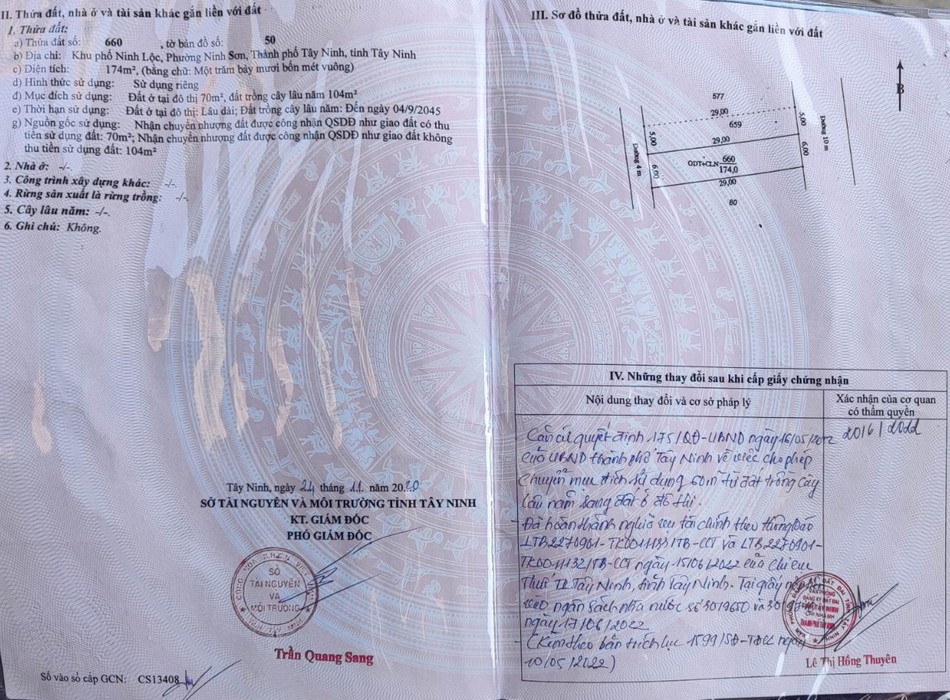 II. Thửa đất, nhà ở và tài sản khác gắn liền với đất
1. Thửa đất:
a) Thửa đất số: 660 , tờ bản đồ số: 50
b) Địa chỉ: Khu phố Ninh Lộc, Phường Ninh Sơn, Thành phố Tây Ninh, tỉnh Tây Ninh
c) Diện tích: 174m², (bằng chữ: Một trăm bảy mươi bốn mét vuông)
d) Hình thức sử dụng: Sử dụng riêng
đ) Mục đích sử dụng: Đất ở tại đô thị 70m², đất trồng cây lâu năm 104m²
e) Thời hạn sử dụng: Đất ở tại đô thị: Lâu dài; Đất trồng cây lâu năm: Đến ngày 04/9/2045
g) Nguồn gốc sử dụng: Nhận chuyển nhượng đất được công nhận QSDĐ như giao đất có thu
tiền sử dụng đất: 70m²; Nhận chuyển nhượng đất được công nhận QSDĐ như giao đất không
thu tiền sử dụng đất: 104m²
2. Nhà ở: -/-.
3. Công trình xây dựng khác: -/-.
4. Rừng sản xuất là rừng trồng: -/-.
5. Cây lâu năm: -/-.
6. Ghi chú: Không.
Tây Ninh, ngày 24 tháng 11 năm 2020
SỞ TÀI NGUYÊN VÀ MÔI TRƯỜNG TỈNH TÂY NINH
KT. GIÁM ĐỐC
PHÓ GIÁM ĐỐC
SỞ
TÀI NGUYÊN
VÀ
MÔI TRƯỜNG
Trần Quang Sang
Số vào sổ cấp GCN: CS13408
III. Sơ đồ thửa đất, nhà ở và tài sản khác gắn liền với đất
B
577
29,00
5,00
659
5,00
29,00
Đường 4 m
Đường 10 m
6,00
ODT+CLN 660
174,0
6,00
29,00
80
IV. Những thay đổi sau khi cấp giấy chứng nhận
Nội dung thay đổi và cơ sở pháp lý
Xác nhận của cơ quan
có thẩm quyền
Căn cứ quyết định 175/QĐ-UBND ngày 16/05/2022
20/6/2022
của UBND thành phố Tây Ninh về việc cho phép
chuyển mục đích sử dụng 50m² từ đất trồng cây
lâu năm sang đất ở đô thị.
- Đã hoàn thành nghĩa vụ tài chính theo thông báo
ngày 15/06/2022 của Chi cục
Thuế TP Tây Ninh, tỉnh Tây Ninh. Tại giấy
ngân sách nhà nước số 3019650 và
ngày 17/06/2022
(Kèm theo bản trích lục 1599/SĐ-TĐCC ngày
10/05/2022)
Lê Thị Hồng Thuyên